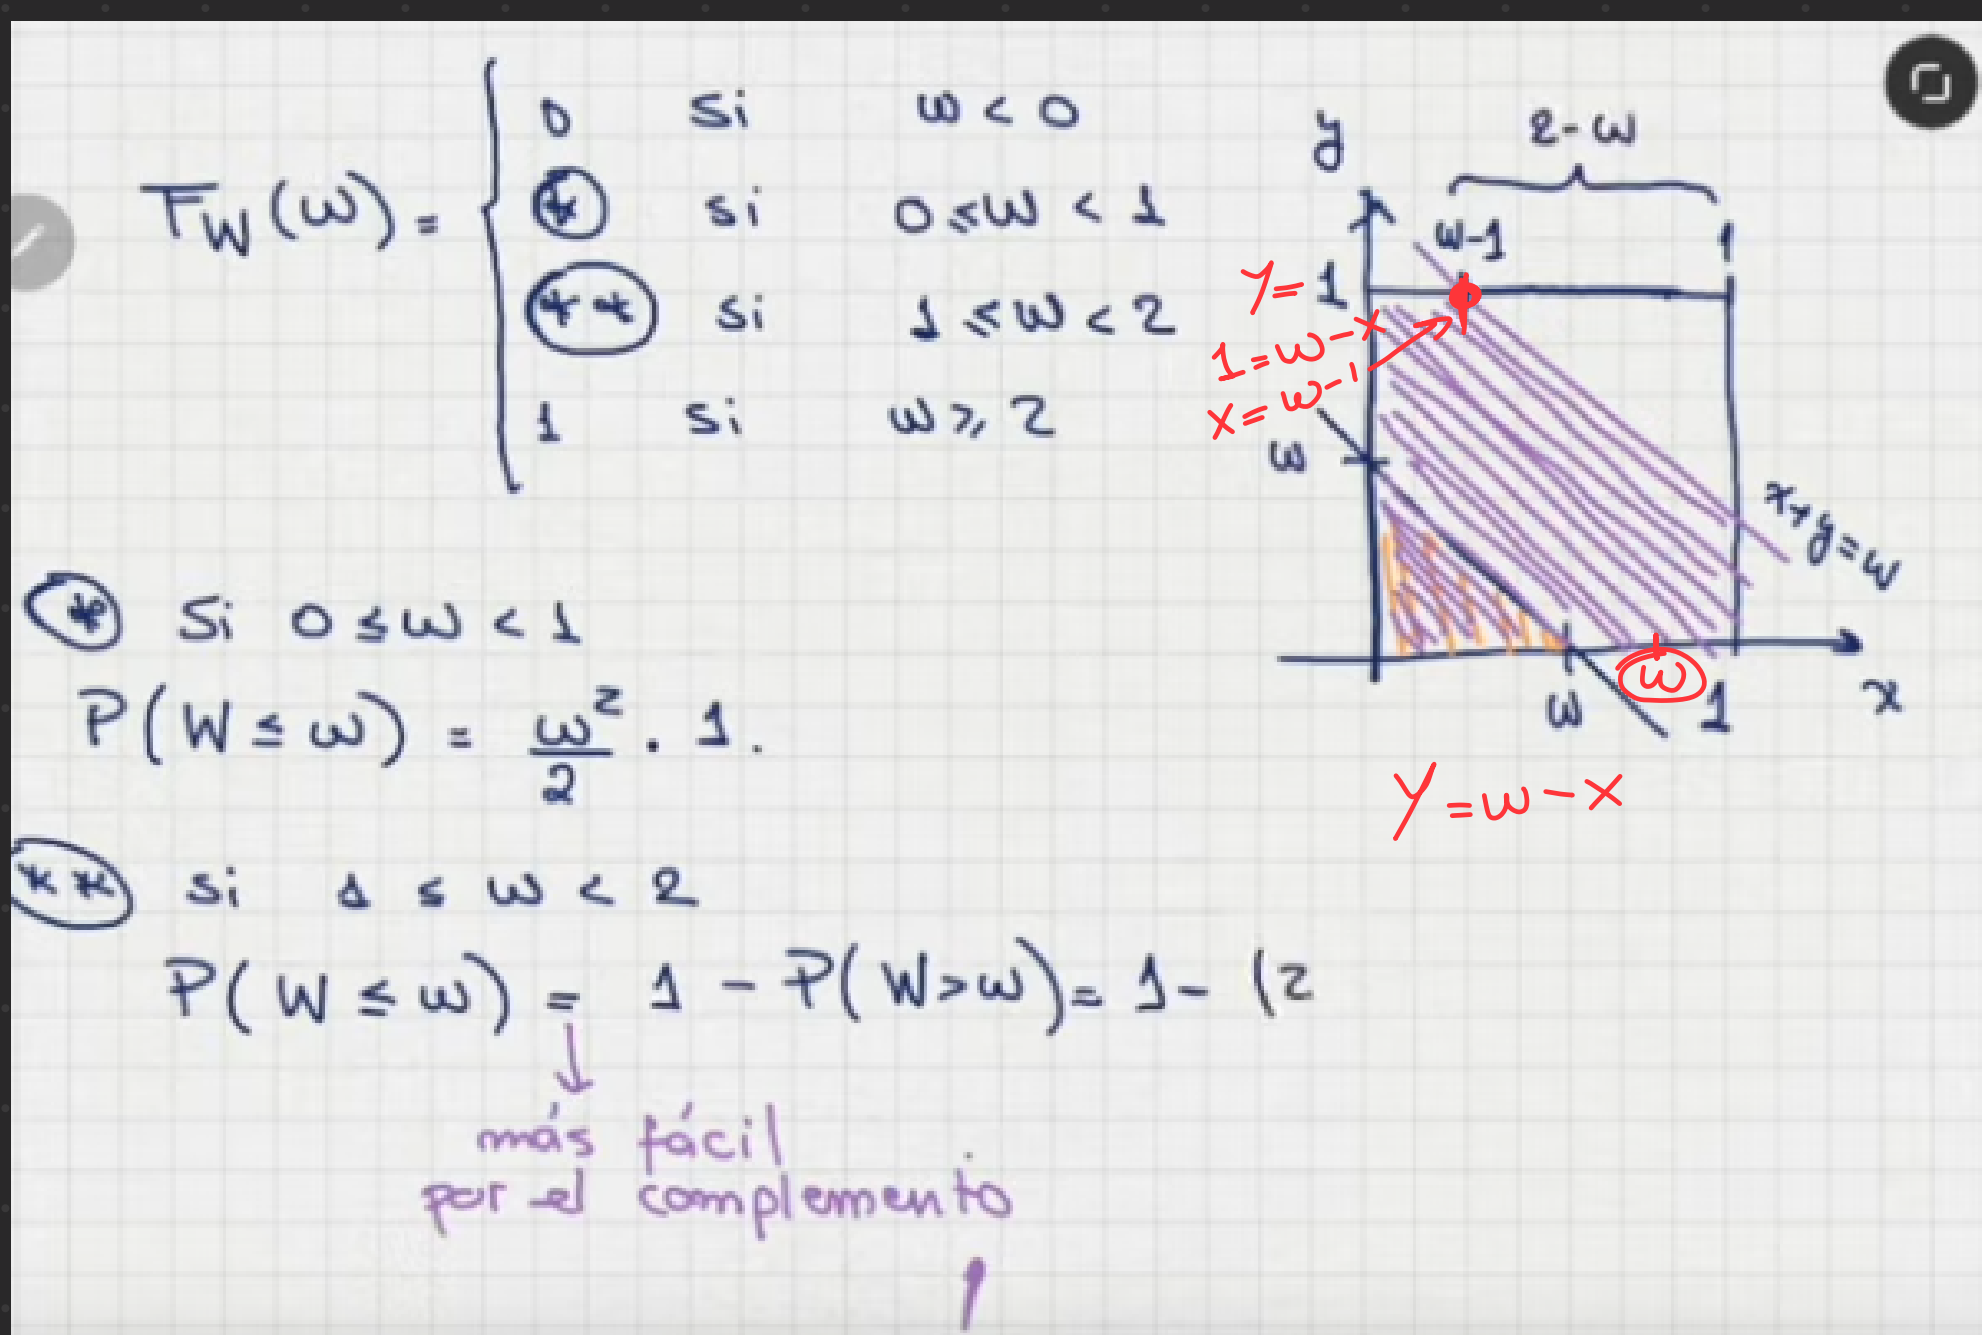 F_W(ω) = { 0 si ω < 0
(*) si 0 ≤ ω < 1
(**) si 1 ≤ ω < 2
1 si ω ≥ 2
2-ω
y
ω-1
1
y= 1
1=ω-x
x=ω-1
ω
x+y=ω
ω
ω
1
x
y=ω-x
(*) Si 0 ≤ ω < 1
P(W ≤ ω) = ω²/2 . 1.
(**) si 1 ≤ ω < 2
P(W ≤ ω) = 1 - P(W>ω) = 1 - (2
más fácil
por el complemento